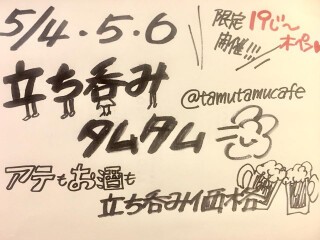 5/4.5.6
限定19じ〜
開催!!! オペ
立ち呑み
@tamutamucafe
タムタム
アテもお酒も
立ち呑み価格